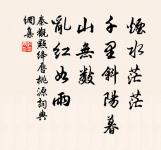 煙水茫茫
千里斜陽暮
山無數
亂紅如雨
秦觀點絳唇桃源詞典
網集